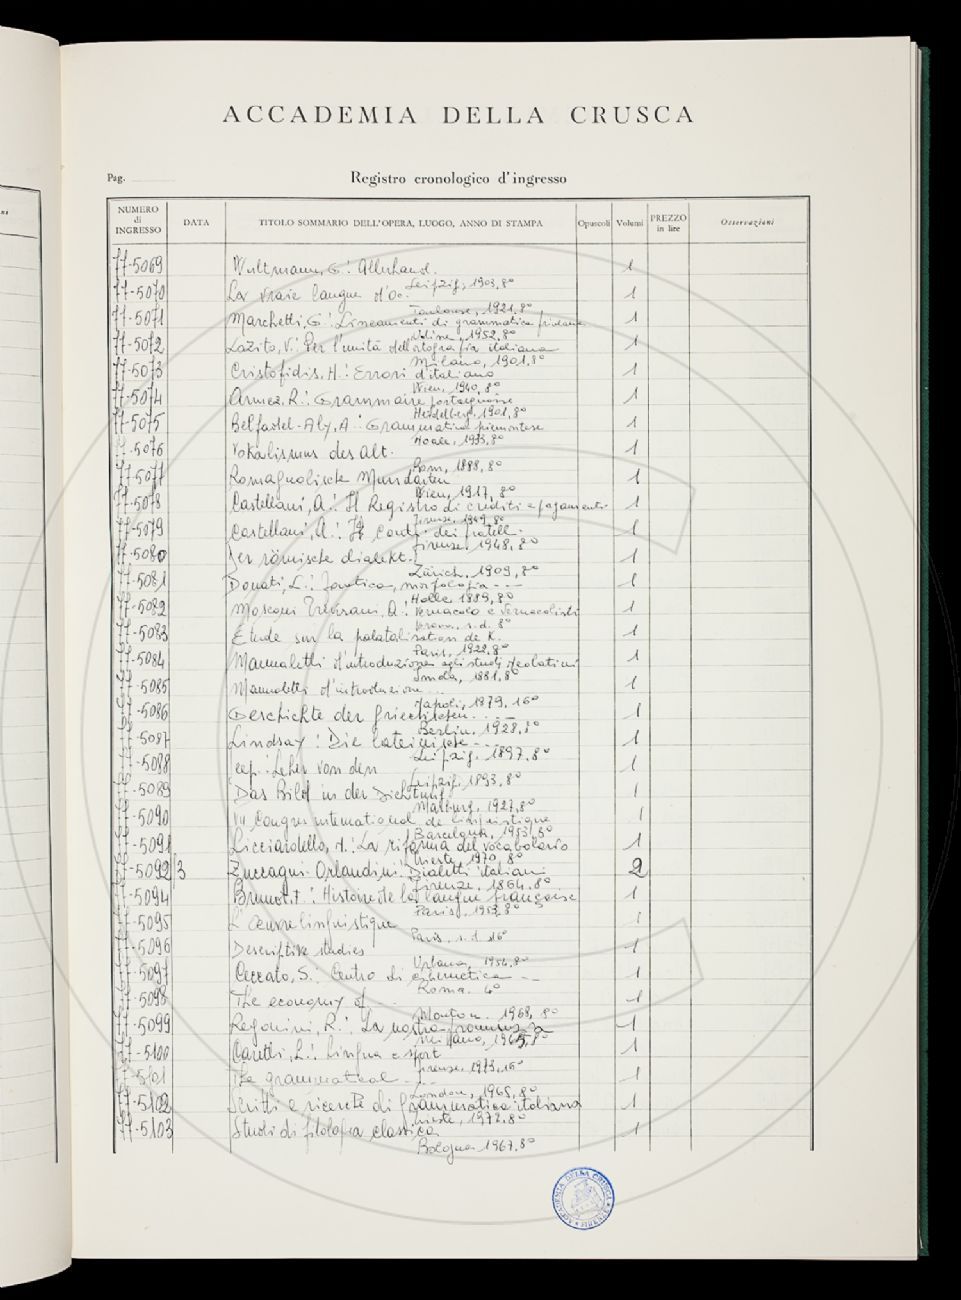 ACCADEMIA DELLA CRUSCA
Pag.
Registro cronologico d'ingresso
NUMERO di INGRESSO DATA TITOLO SOMMARIO DELL'OPERA, LUOGO, ANNO DI STAMPA Opuscoli Volumi PREZZO in lire Osservazioni
77-5069 G.: Allerhand. 1
Leipzig, 1903, 8°
77-5070 La vraie langue d'Oc. 1
Toulouse, 1921, 8°
77-5071 Marchetti, G: Lineamenti di grammatica friulana 1
Udine, 1952, 8°
77-5072 Lazito, V.: Per l'unità dell'ortografia italiana 1
Milano, 1901, 8°
77-5073 Cristofidis, H.: Errori d'italiano 1
Wien, 1940, 8°
77-5074 R.: Grammaire 1
Heidelberg, 1901, 8°
77-5075 A.: Grammatica piemontese 1
1933, 8°
77-5076 Vokalismus des Alt. 1
1888, 8°
77-5077 Romagnolische Mundarten 1
Wien, 1917, 8°
77-5078 Castellani, A.: Il Registro di crediti e pagamenti 1
Firenze, 1949, 8°
77-5079 Castellani, A.: dei fratelli 1
Firenze, 1948, 8°
77-5080 Der römische dialekt. 1
Zürich, 1909, 8°
77-5081 Donati, L.: Fonetica, morfologia --- 1
Halle, 1889, 8°
77-5082 A: Vernacolo e vernacolisti 1
s.d. 8°
77-5083 Étude sur la palatalisation de K. 1
Paris, 1928, 8°
77-5084 Mannaletti d'introduzione agli studj neolatini 1
Imola, 1881, 8°
77-5085 Mannaletti d'introduzione ... 1
Napoli, 1879, 16°
77-5086 Geschichte der griechischen... 1
Berlin, 1928, 8°
77-5087 Lindsay: Die lateinische -- 1
Leipzig, 1897, 8°
77-5088 Lehre von den 1
Leipzig, 1893, 8°
77-5089 Das Bild in der Dichtung 1
Marburg, 1927, 8°
77-5090 VII Congres international de linguistique 1
Barcelona, 1953, 8°
77-5091 Licciardello, A.: La riforma del vocabolario 1
Trieste, 1970, 8°
77-5092/3 Zuccagni Orlandini: Dialetti italiani 2
Firenze, 1864, 8°
77-5094 Brunot, F: Histoire de la langue française 1
Paris, 1953, 8°
77-5095 L'oeuvre linguistique 1
Paris, s.d. 16°
77-5096 Descriptive studies 1
Urbana, 1954, 8°
77-5097 Ceccato, S.: Centro di cibernetica --- 1
Roma. 4°
77-5098 The economy of -- 1
Mouton. 1968, 8°
77-5099 R.: La nostra pronunzia 1
Milano, 1965, 8°
77-5100 Caretti, L.: Lingua e sport 1
Firenze, 1973, 16°
77-5101 The grammatical --- 1
London, 1965, 8°
77-5102 Scritti e ricerche di grammatica italiana 1
Trieste, 1972, 8°
77-5103 Studi di filologia classica 1
Bologna 1967, 8°
ACCADEMIA DELLA CRUSCA FIRENZE